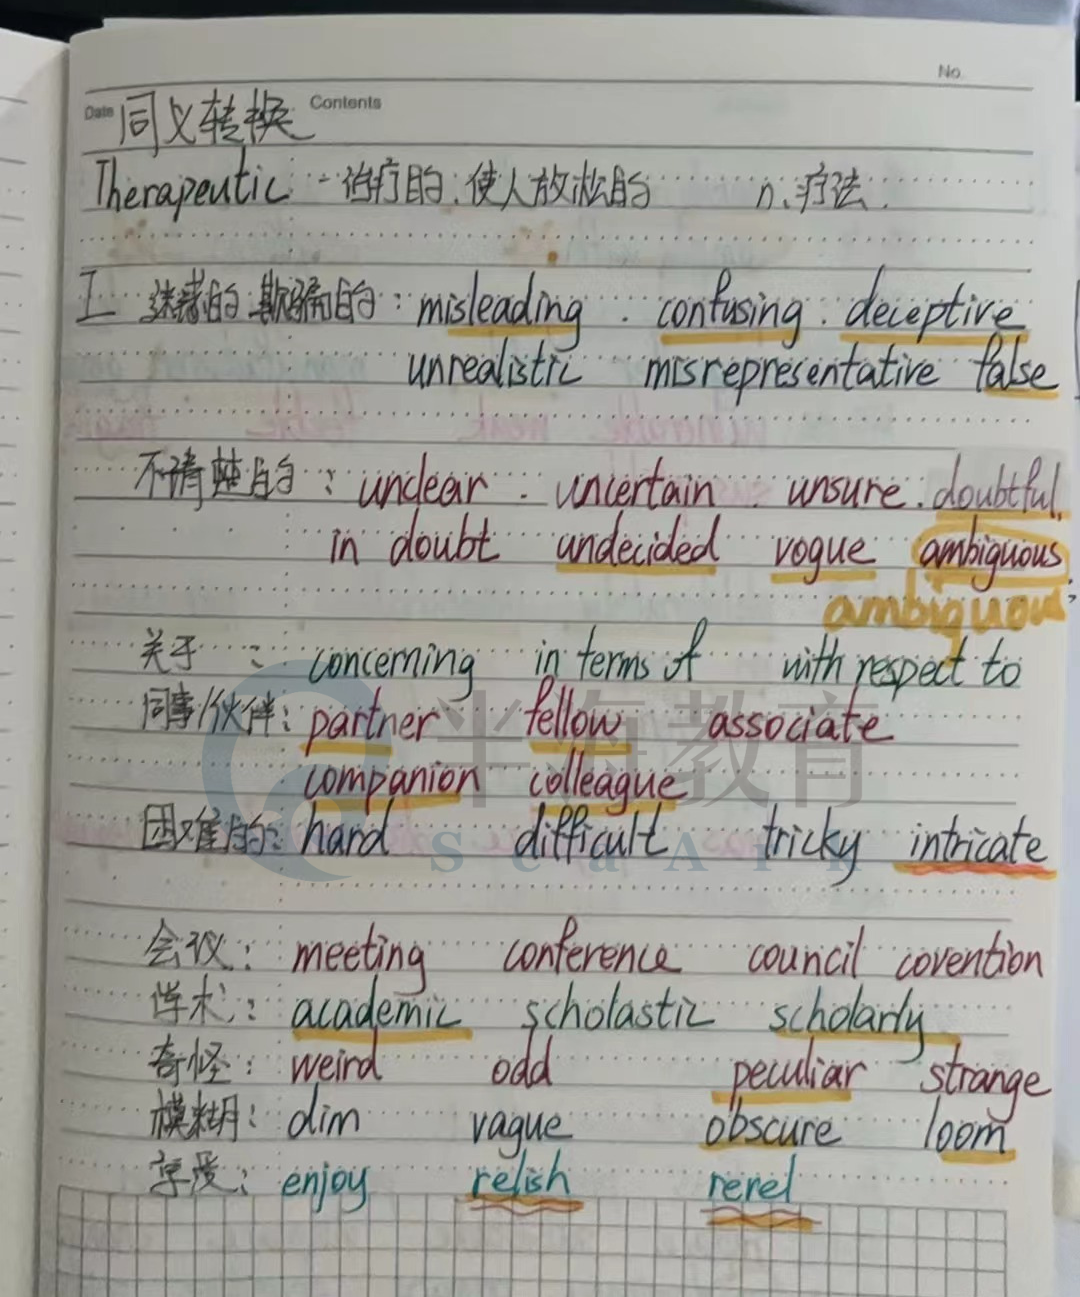 No.
Date 同义转换 Contents
Therapeutic - 治疗的.使人放松的 n.疗法.
I 迷惑的 欺骗的: misleading . confusing . deceptive
unrealistic misrepresentative false
不清楚的: unclear . uncertain unsure . doubtful.
in doubt undecided vogue ambiguous
ambiguous
关于 : concerning in terms of with respect to
同事/伙伴: partner fellow associate
半海教育
companion colleague
困难的: hard difficult tricky intricate
SeaArk
会议: meeting conference council covention
学术: academic scholastic scholarly
奇怪: weird odd peculiar strange
模糊: dim vague obscure loom
享受: enjoy relish rerel